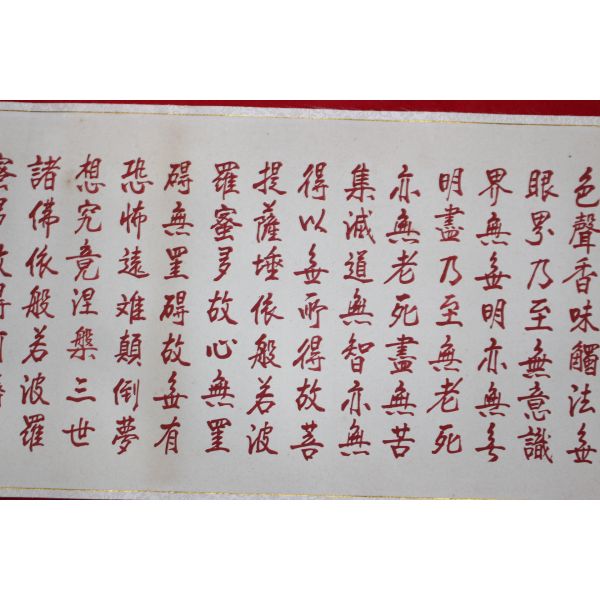 色聲香味觸法無
眼界乃至無意識
界無無明亦無無
明盡乃至無老死
亦無老死盡無苦
集滅道無智亦無
得以無所得故菩
提薩埵依般若波
羅蜜多故心無罣
礙無罣礙故無有
恐怖遠離顛倒夢
想究竟涅槃三世
諸佛依般若波羅
蜜多故得阿